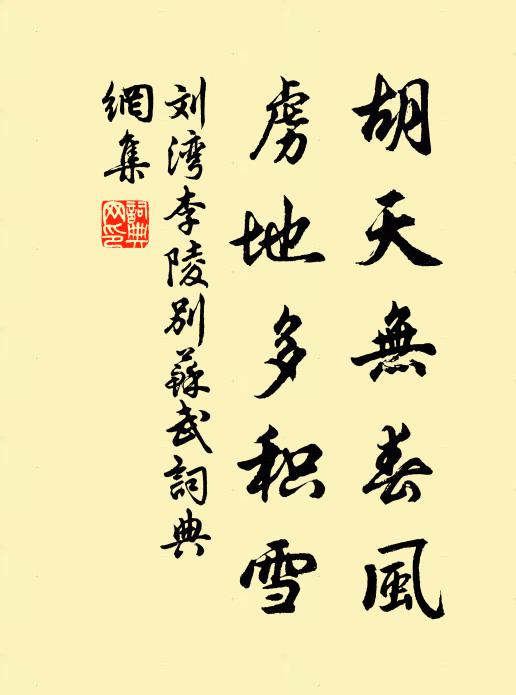 胡天無春風
虜地多积雪
刘湾李陵别蘇武詞典
網集
詞典
网印